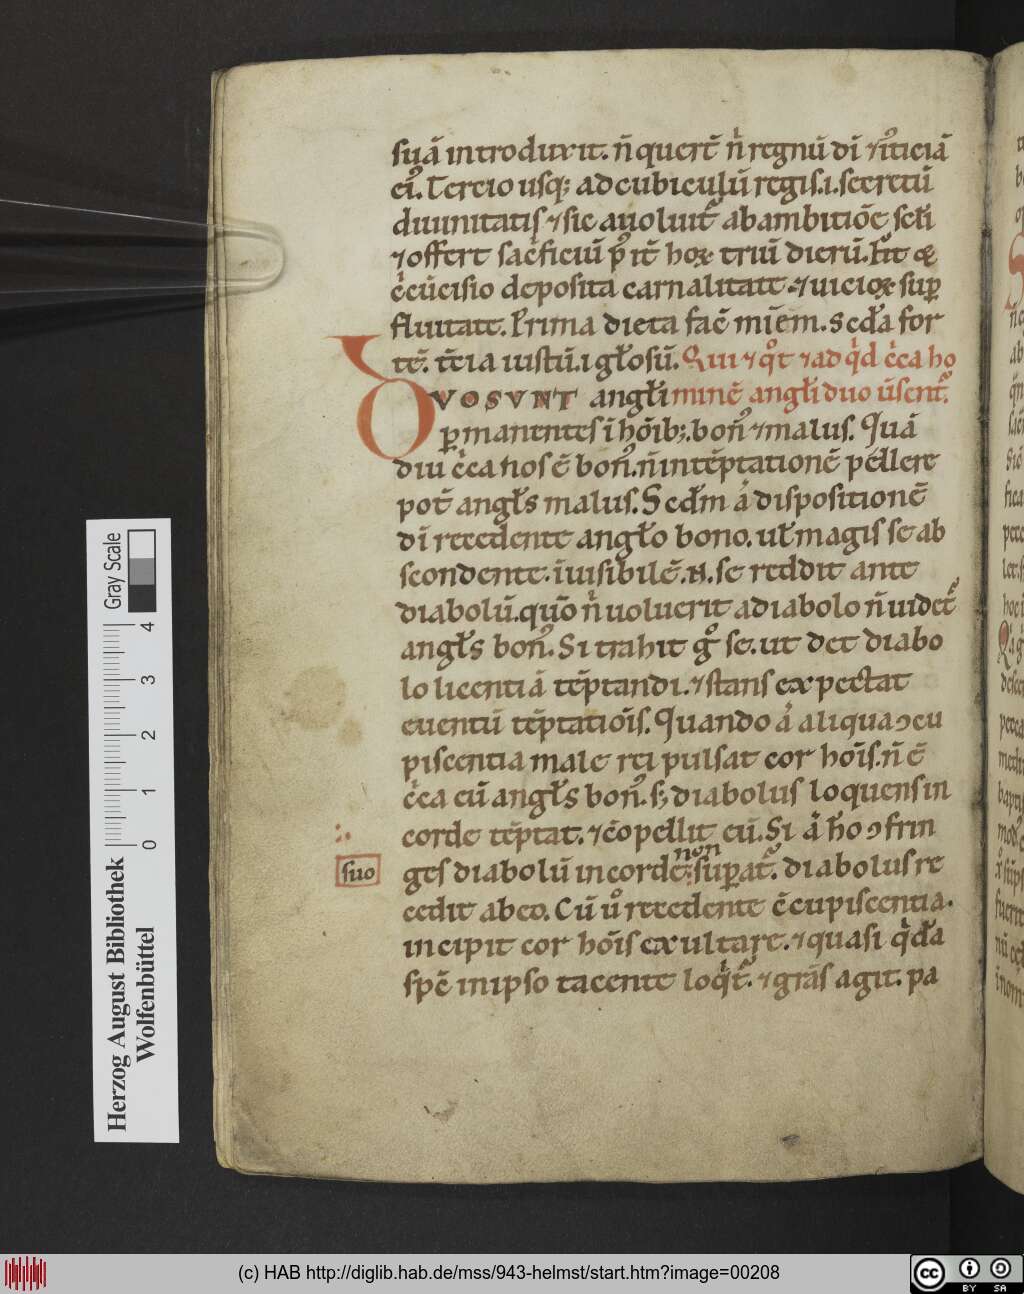 suā introduxit. n̄ querēt nͥ regnū dī ⁊ iᷤticiā
eiꝰ. Tercio usq; ad cubiculū regis .i. secretū
diuinitatis ⁊ sic auoluit᷑ ab ambitiōe sc̄li
⁊ offert sac̄ficiū pͦ it̄ hoꝝ triū dierū. Fit &
c̄cūcisio deposita carnalitate ⁊ uicioꝝ suꝑ
fluitate. Prima dieta fac̄ mīem. Scđa for
tē. t̄cia iustū .i. głosū. Qui ⁊ qͦt ⁊ ad qͥd c̄ca ho
VO SVNT angłi minē angłi duo ūsent᷑.
ꝑmanentes ī hōib;. bonꝰ ⁊ malus. Quā
diu c̄ca nos ē bonꝰ. n̄ in tēptationē pellere
potē angłs malus. Secđm aͥ dispositionē
dī recedente angło bono. uł magis se ab
scondente. īuisibilē .N. se reddit ante
diabolū. quō nͥ uoluerit a diabolo n̄ uidet᷑
angłs bonꝰ. Si trahit gͦ se. ut det diabo
lo licentiā tēptandi. ⁊ stans expectat
euentū tēptatiōis. Quando aͥ aliqua ɔcu
piscentia male rei pulsat cor hōis. n̄ ē
c̄ca cū angłs bonꝰ. s; diabolus loquens in
corde tēptat. ⁊ cōpellit eū. Si aͥ hō ɔfrin
suo
ges diabolū in corde non suꝑat᷑. diabolus re
cedit ab eo. Cū uͦ recedente c̄cupiscentia.
incipit cor hōis exultare. ⁊ quasi qͥdā
spē in ipso tacente loqͥt᷑. ⁊ grās agit. pa
Gray Scale
0 1 2 3 4
Herzog August Bibliothek
Wolfenbüttel
(c) HAB http://diglib.hab.de/mss/943-helmst/start.htm?image=00208
cc BY SA